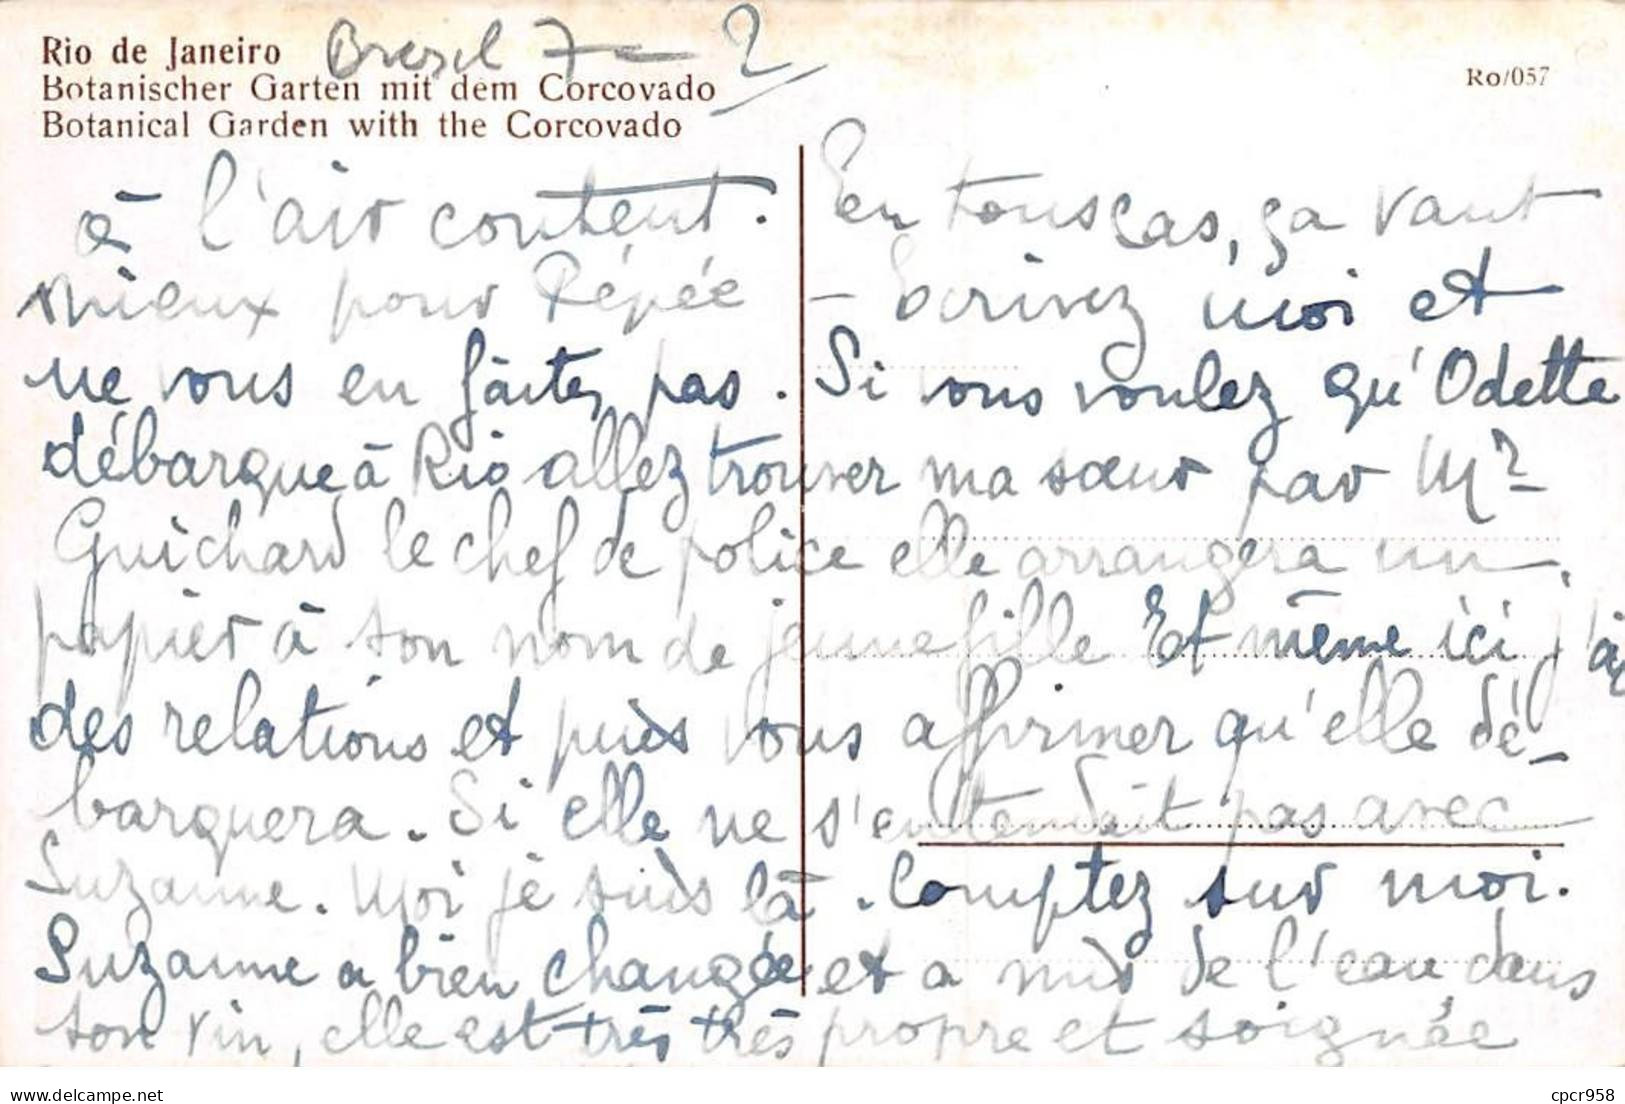 Rio de Janeiro Bresil 7 - 2
Ro/057
Botanischer Garten mit dem Corcovado
Botanical Garden with the Corcovado
à l'air content. En tous cas, ça vaut
mieux pour Pépée - Ecrivez moi et
ne vous en faites pas. Si vous voulez qu'Odette
débarque à Rio allez trouver ma sœur par Mr
Guichard le chef de police elle arrangera un
papier à son nom de jeune fille Et même ici j'ai
des relations et puis vous affirmer qu'elle dé-
barquera. Si elle ne s'entendait pas avec
Suzanne. Moi je suis là. Comptez sur moi.
Suzanne a bien changée et a mis de l'eau dans
son vin, elle est très très propre et soignée
cpcr958